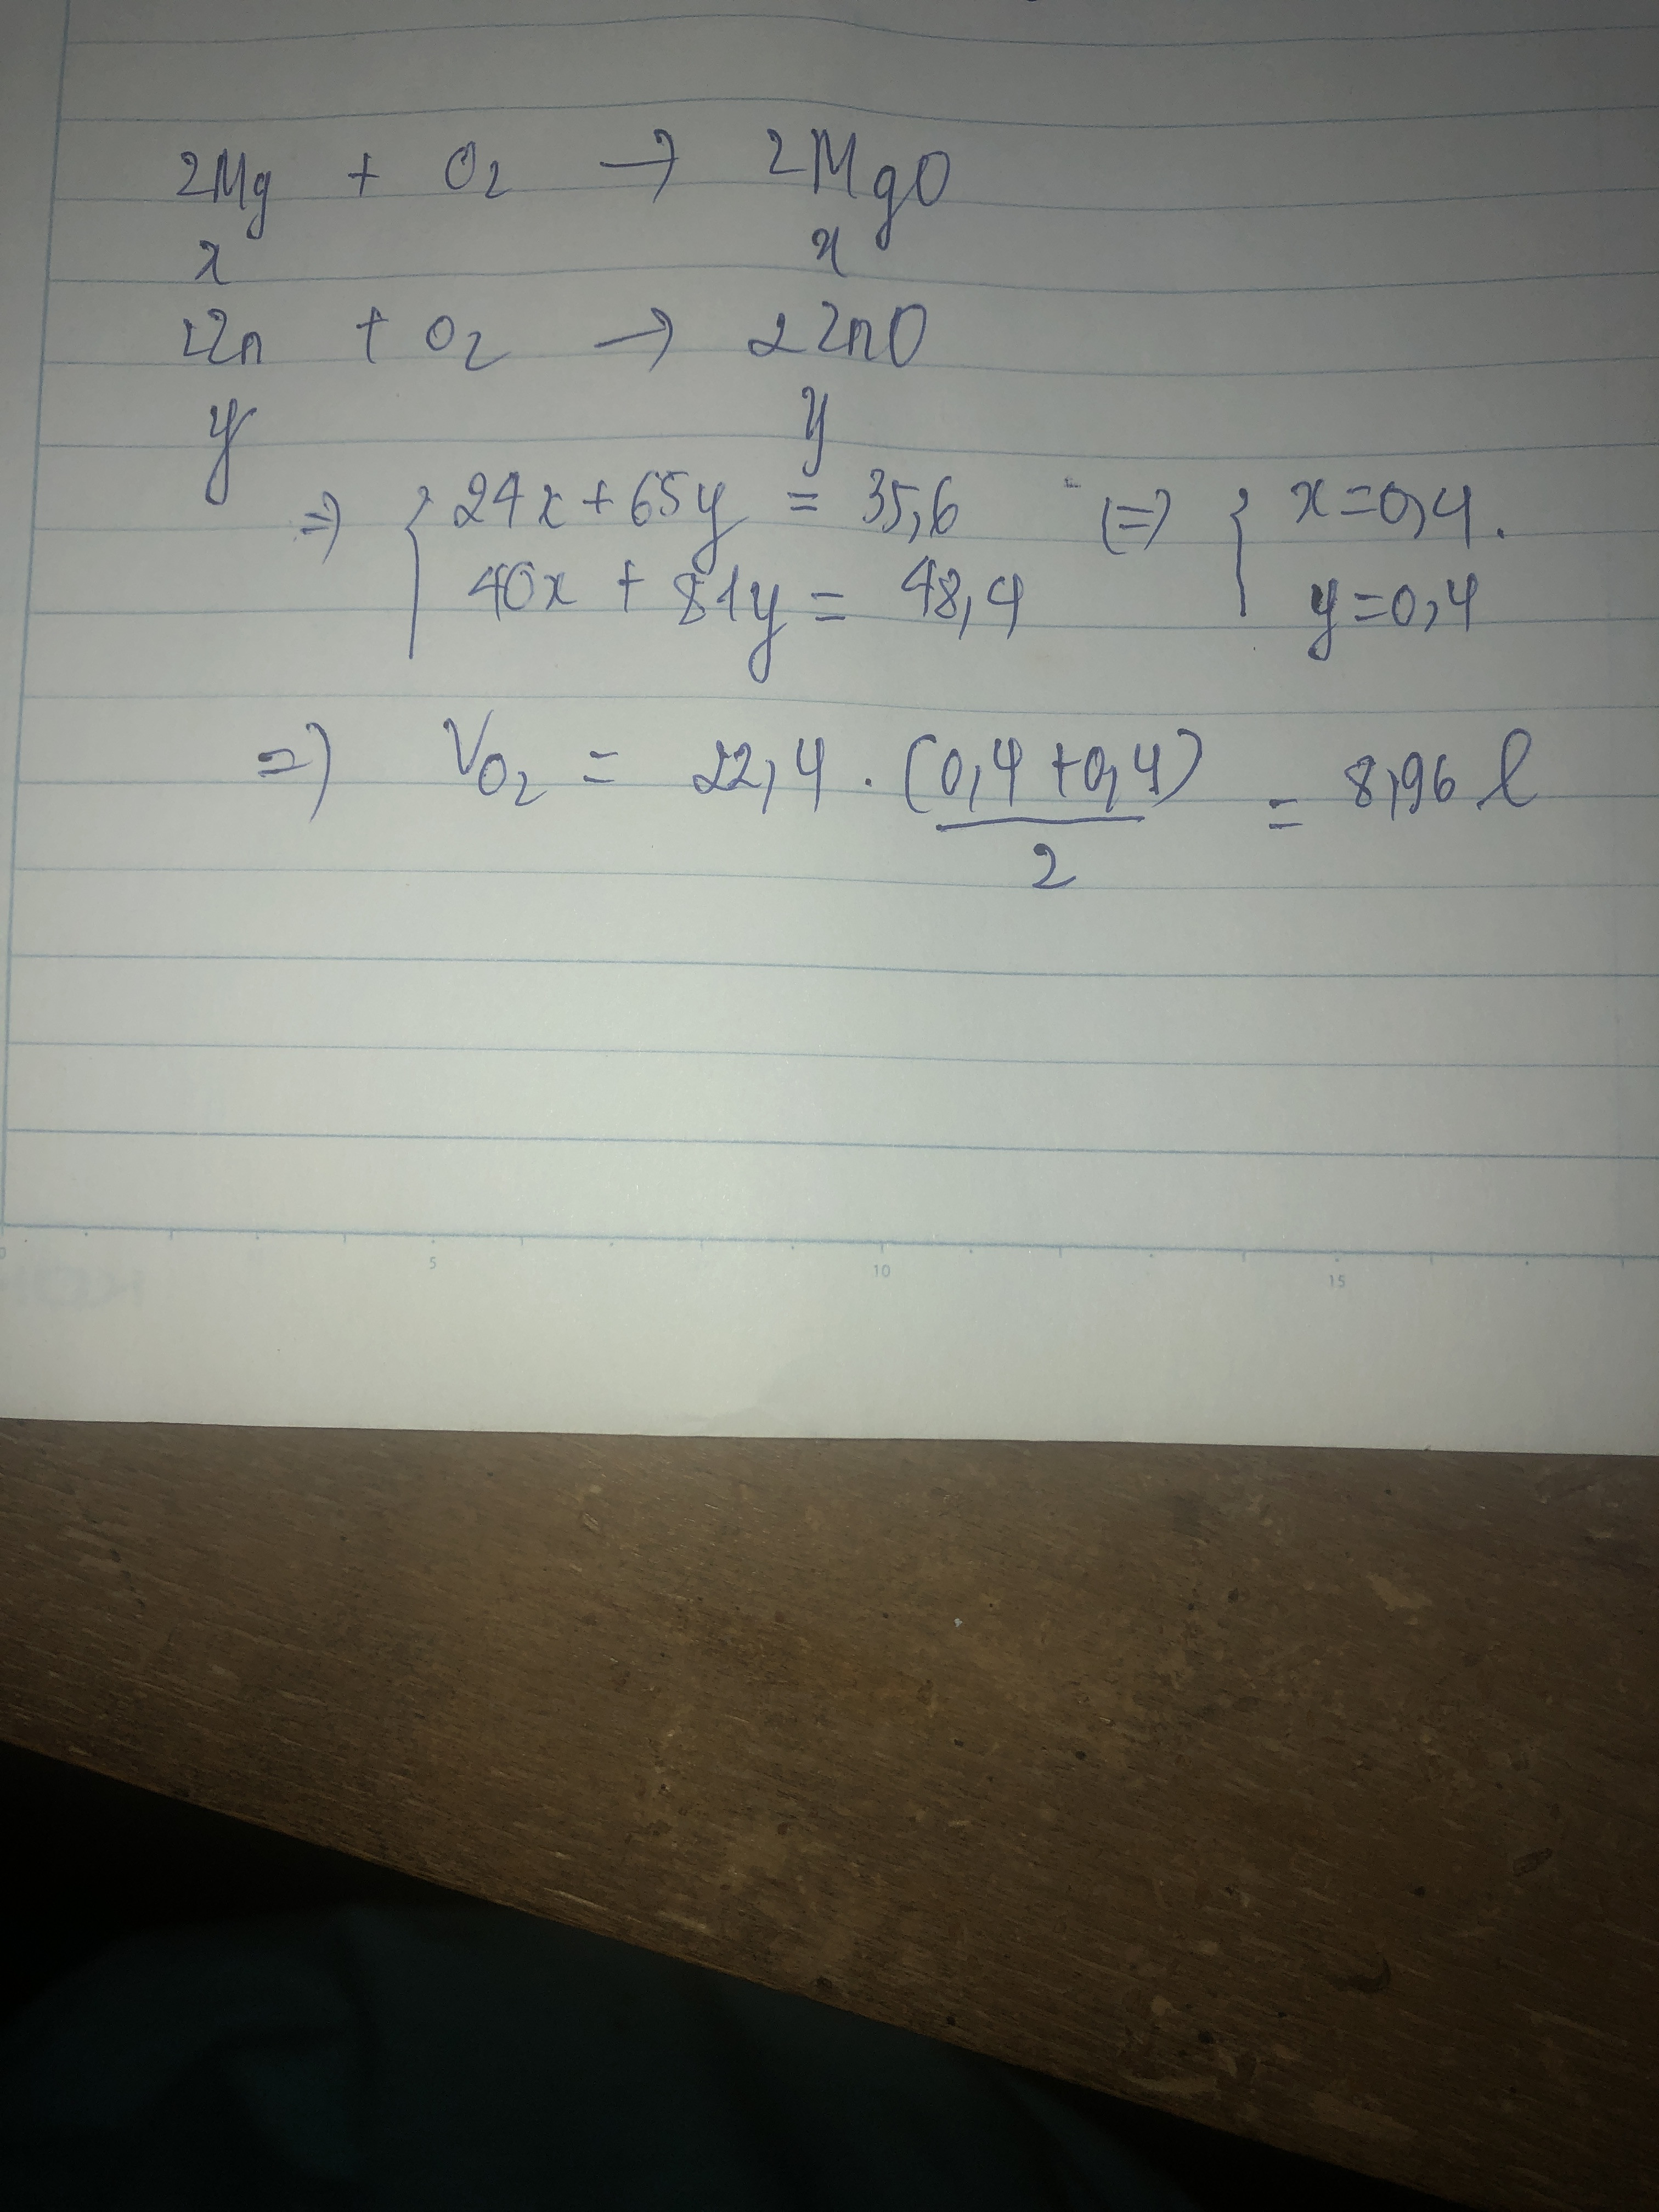 2Mg + O2 → 2MgO
x x
2Zn + O2 → 2ZnO
y y
=> { 24x + 65y = 35,6 (=) { x = 0,4.
40x + 81y = 48,4 y = 0,4
=> VO2 = 22,4 . (0,4 + 0,4) = 8,96 l
2
5 10 15